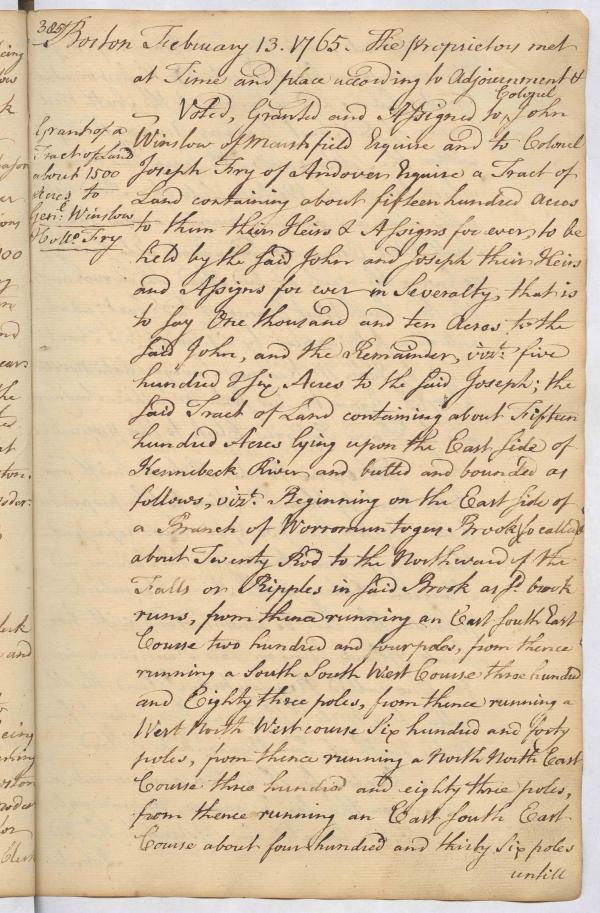 385
Boston February 13. 1765. The proprietors met
at Time and place according to Adjournment &
Colonel
Voted, Granted and Assigned to John
Winslow of Marshfield Esquire and to Colonel
Joseph Fry of Andover Esquire a Tract of
Land containing about fifteen hundred Acres
to them their Heirs & Assigns for ever, to be
held by the said John and Joseph their Heirs
and Assigns for ever in Severalty, that is
to say One thousand and ten Acres to the
said John, and the Remainder, vizt. five
hundred & six Acres to the said Joseph; the
said Tract of Land containing about Fifteen
hundred Acres lying upon the East side of
Kennebeck River and butted and bounded as
follows, vizt. Beginning on the East side of
a Branch of Worromuntogus Brook so called
about Twenty Rod to the Northward of the
Falls or Ripples in said Brook as sd. brook
runs, from thence running an East South East
Course two hundred and four poles, from thence
running a South South West Course three hundred
and Eighty three poles, from thence running a
West North West course Six hundred and forty
poles, from thence running a North North East
Course three hundred and eighty three poles,
from thence running an East South East
Course about four hundred and thirty Six poles
untill
Grant of a
Tract of Land
about 1500
Acres to
Genl. Winslow
& Collo. Fry